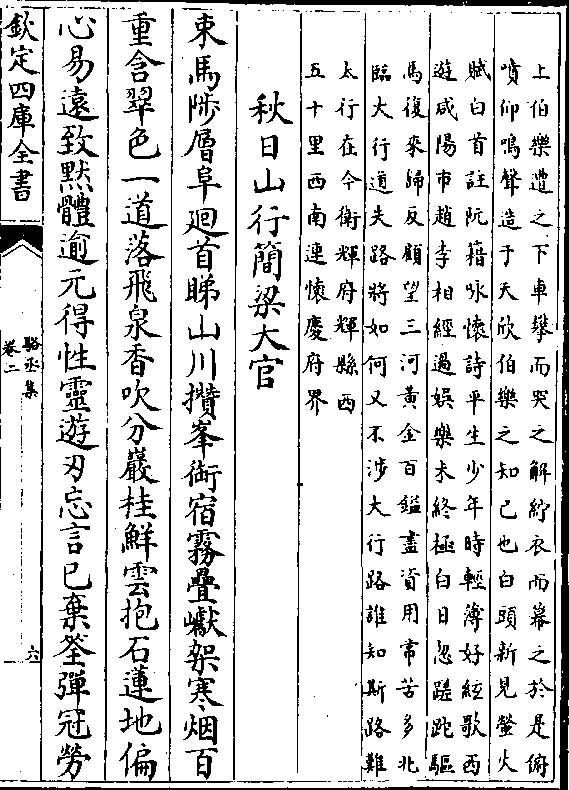 上伯樂遭之下車攀而哭之解紵衣而冪之於是俯
噴仰鳴聲造于天欣伯樂之知己也白頭新見螢火
賦白首註阮籍咏懷詩平生少年時輕薄好絃歌西
遊咸陽市趙李相經過娛樂未終極白日忽蹉跎驅
馬復來歸反顧望三河黃金百鎰盡資用常苦多北
臨太行道失路將如何又不涉太行路誰知斯路難
太行在今衛輝府輝縣西
五十里西南連懷慶府界
秋日山行簡梁大官
束馬陟層阜廻首睇山川攢峯銜宿霧疊巘架寒烟百
重含翠色一道落飛泉香吹分巖桂鮮雲抱石蓮地偏
心易遠致黙體逾元得性靈遊刃忘言已棄筌彈冠勞
欽定四庫全書
駱丞集
卷二
六